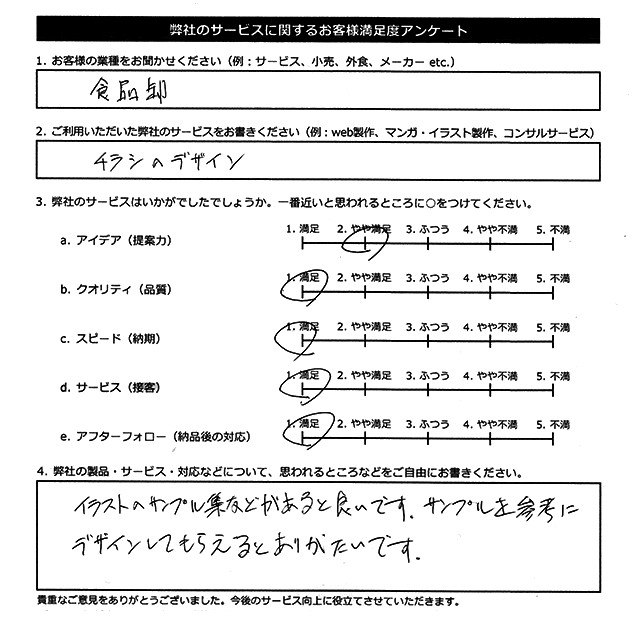 弊社のサービスに関するお客様満足度アンケート
1. お客様の業種をお聞かせください（例：サービス、小売、外食、メーカー etc.）
食品卸
2. ご利用いただいた弊社のサービスをお書きください（例：web製作、マンガ・イラスト製作、コンサルサービス）
チラシのデザイン
3. 弊社のサービスはいかがでしたでしょうか。一番近いと思われるところに○をつけてください。
a. アイデア（提案力） 1. 満足 2. やや満足 3. ふつう 4. やや不満 5. 不満
b. クオリティ（品質） 1. 満足 2. やや満足 3. ふつう 4. やや不満 5. 不満
c. スピード（納期） 1. 満足 2. やや満足 3. ふつう 4. やや不満 5. 不満
d. サービス（接客） 1. 満足 2. やや満足 3. ふつう 4. やや不満 5. 不満
e. アフターフォロー（納品後の対応） 1. 満足 2. やや満足 3. ふつう 4. やや不満 5. 不満
4. 弊社の製品・サービス・対応などについて、思われるところなどをご自由にお書きください。
イラストのサンプル集などがあると良いです。サンプルを参考に
デザインしてもらえるとありがたいです。
貴重なご意見をありがとうございました。今後のサービス向上に役立てさせていただきます。